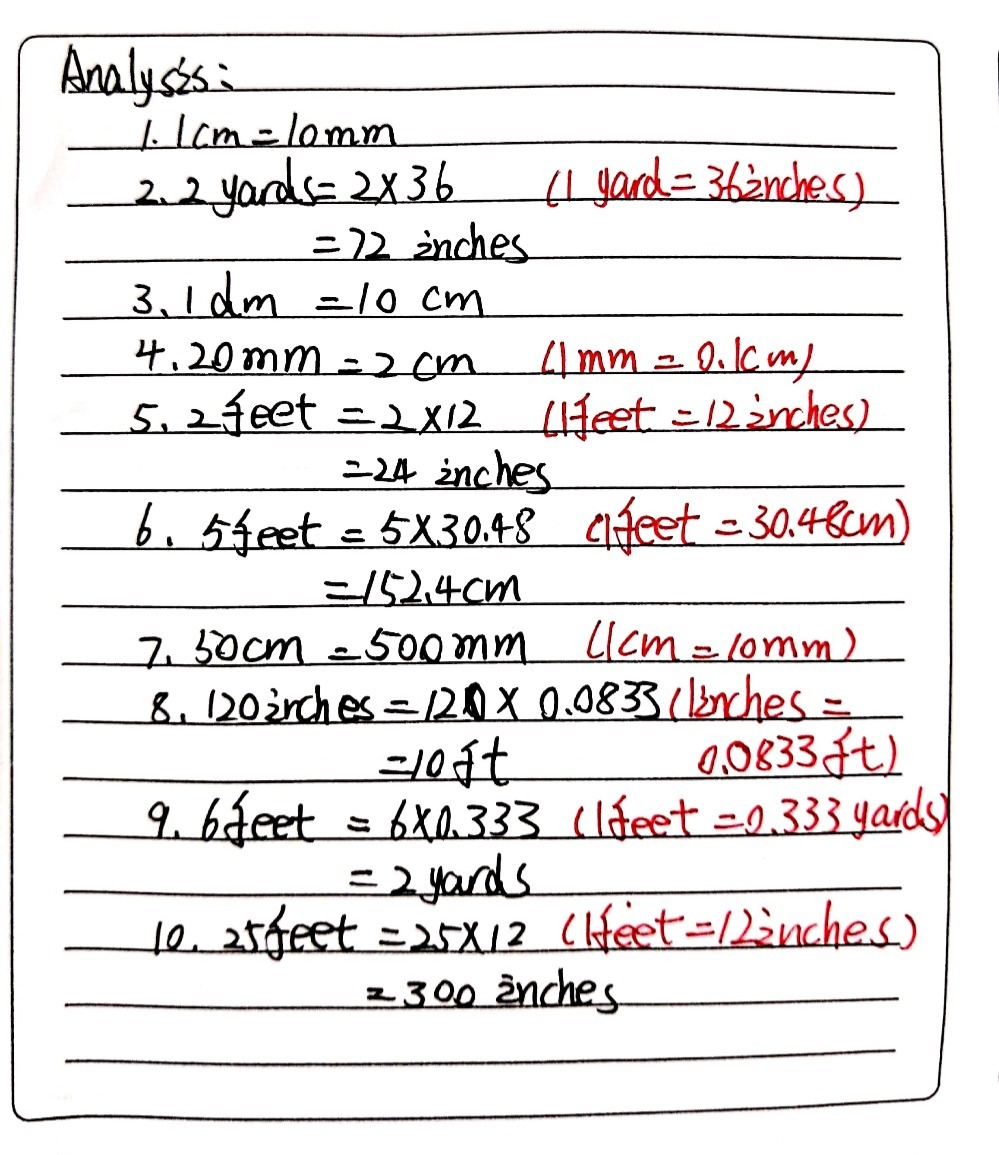 Analysis:
1. 1cm = 10mm
2. 2 yards = 2×36 (1 yard = 36inches)
= 72 inches
3. 1 dm = 10 cm
4. 20mm = 2 cm (1mm = 0.1cm)
5. 2 feet = 2×12 (1feet = 12 inches)
= 24 inches
6. 5feet = 5×30.48 (1feet = 30.48cm)
= 152.4cm
7. 50cm = 500mm (1cm = 10mm)
8. 120inches = 120 × 0.0833 (1inches =
= 10 ft 0.0833 ft)
9. 6feet = 6×0.333 (1feet = 0.333 yards)
= 2 yards
10. 25feet = 25×12 (1feet = 12inches)
= 300 inches